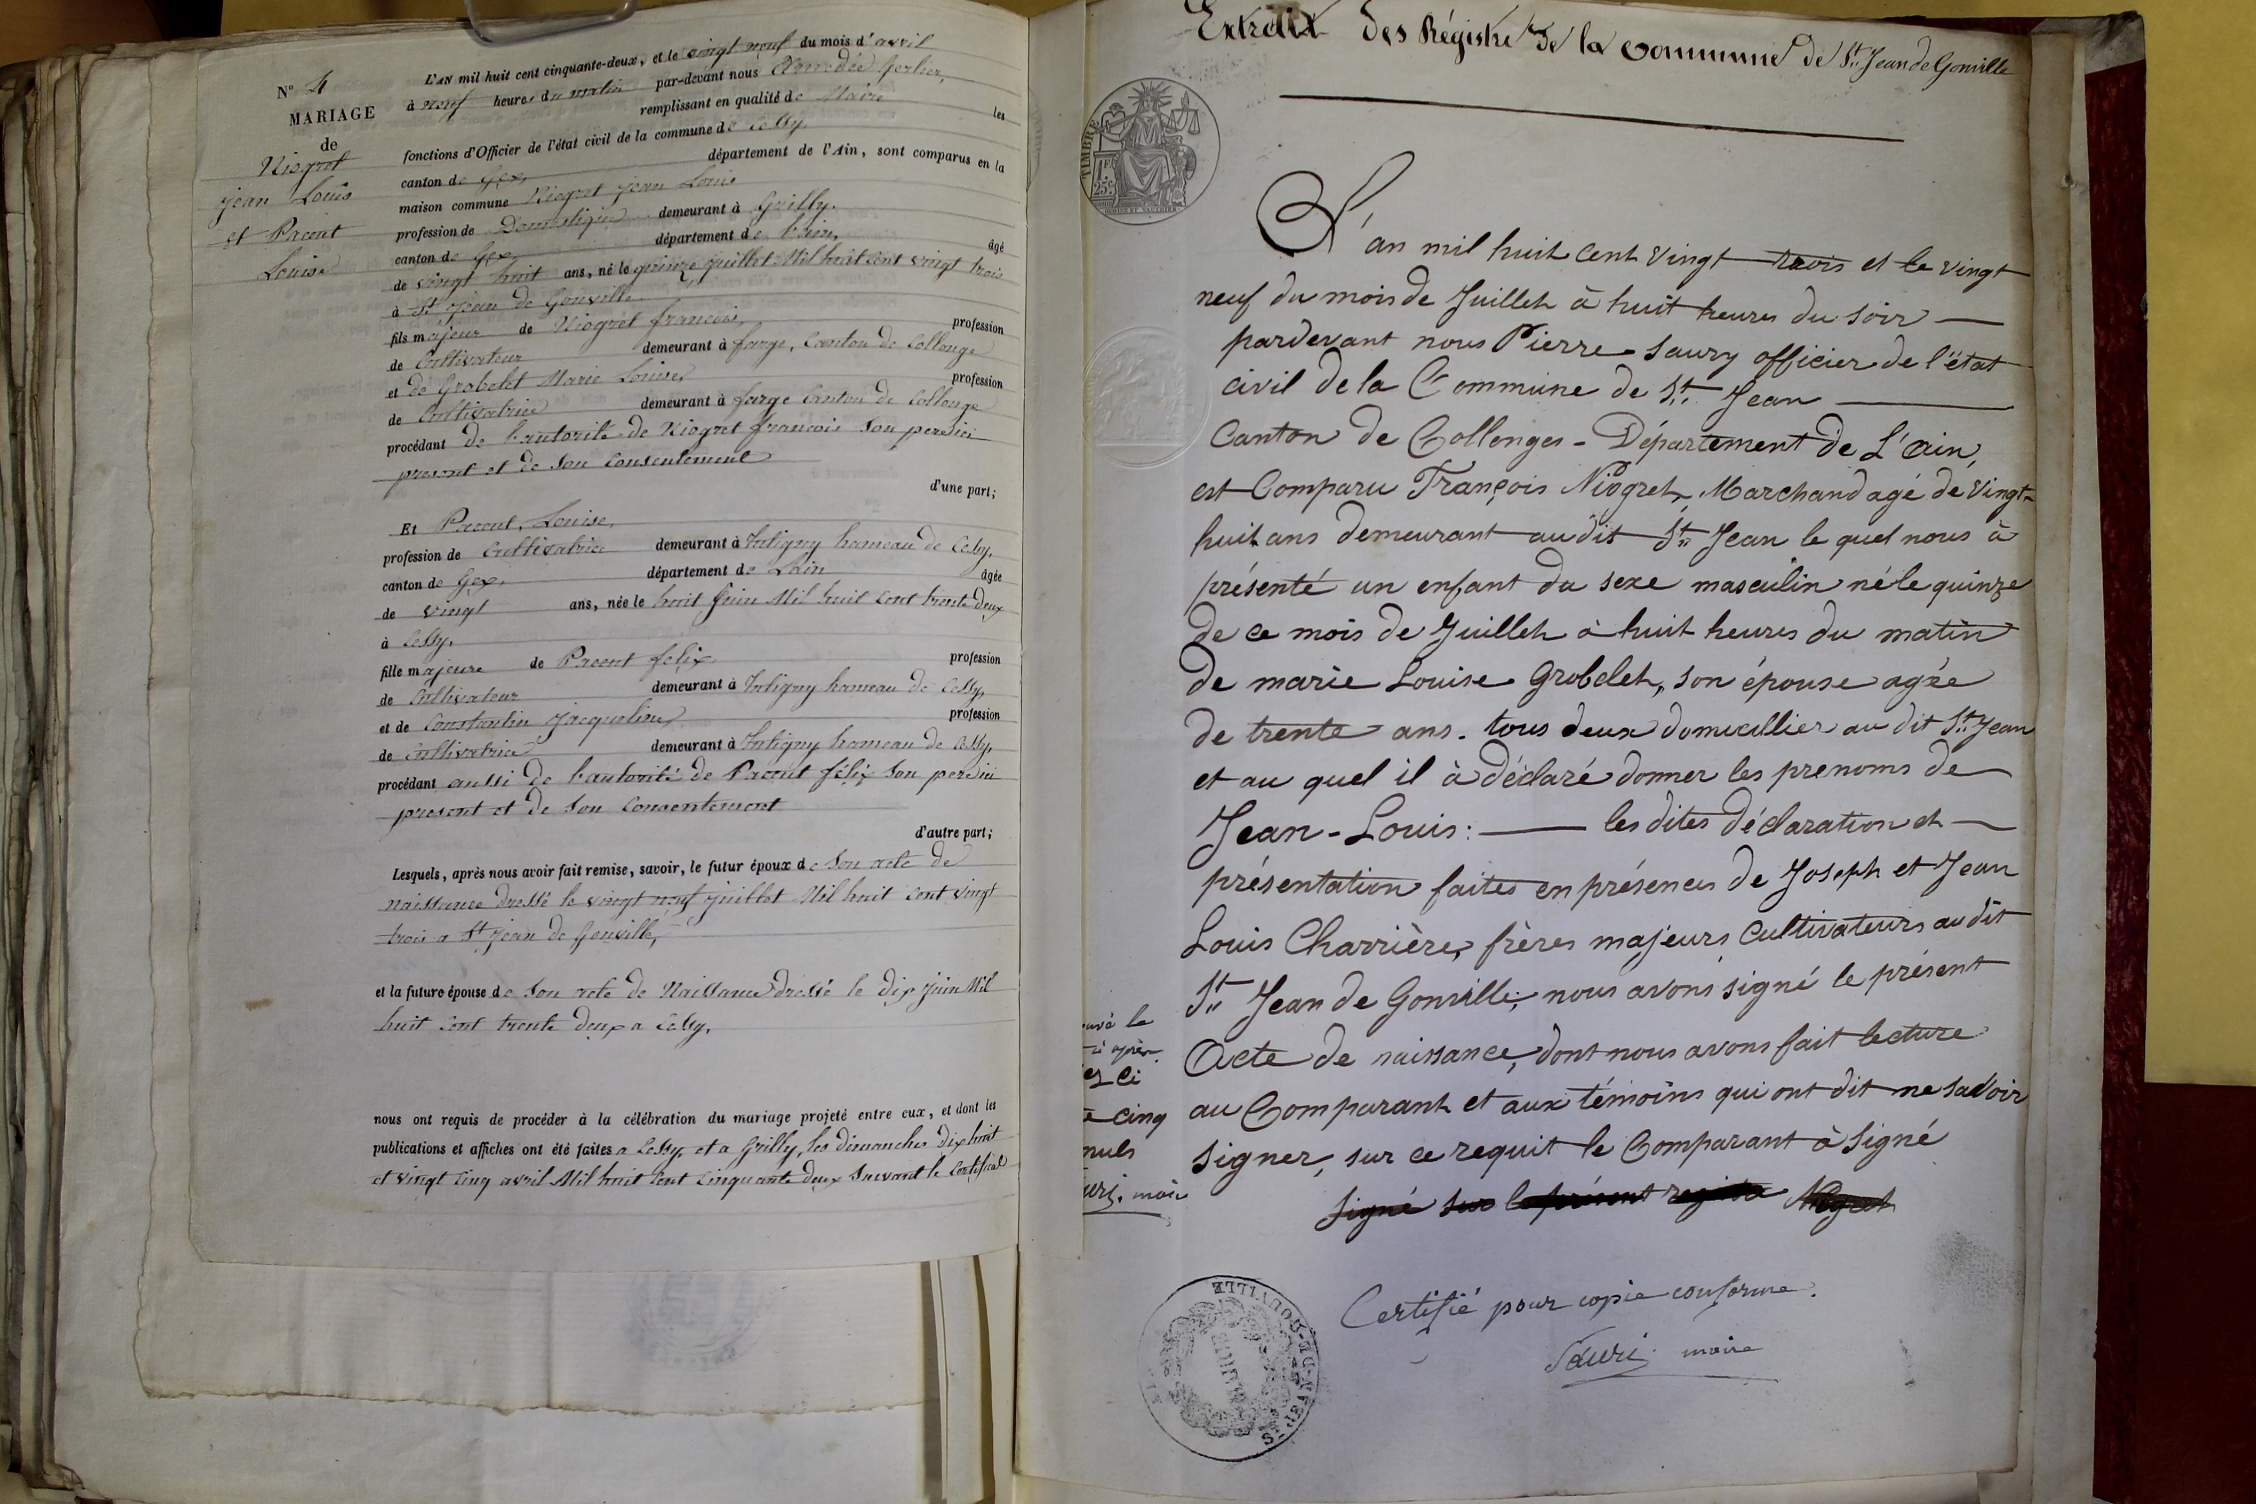 N° 4
MARIAGE
de
Niogret
jean Louis
et Pacout
Louise
L'AN mil huit cent cinquante-deux, et le vingt neuf du mois d'avril
à neuf heures du matin par-devant nous Gerlier,
remplissant en qualité de Maire les
fonctions d'Officier de l'état civil de la commune de Cessy.
canton de Gex, département de l'Ain, sont comparus en la
maison commune Niogret jean Louis
profession de Domestique demeurant à Grilly.
canton de Gex, département de l'ain, âgé
de vingt huit ans, né le quinze juillet Mil huit cent vingt trois
à St jean de Gonville
fils majeur de Niogret francois, profession
de Cultivateur demeurant à farge, Canton de Collonge
et de Grobelet Marie Louise, profession
de Cultivatrice demeurant à farge Canton de Collonge
procédant de l'autorité de Niogret francois son pere ici
present et de son consentement
d'une part;
Et Pacout, Louise,
profession de Cultivatrice demeurant à Tutigny hameau de Cessy,
canton de Gex, département de Lain âgée
de vingt ans, née le huit Juin Mil huit cent trente deux
à Cessy.
fille majeure de Pacout felix profession
de Cultivateur demeurant à Tutigny hameau de Cessy,
et de Constantin jacqueline profession
de Cultivatrice demeurant à Tutigny hameau de Cessy,
procédant aussi de l'autorité de Pacout félix son pere ici
present et de son consentement
d'autre part;
Lesquels, après nous avoir fait remise, savoir, le futur époux de son acte de
naissance dressé le vingt neuf juillet Mil huit cent vingt
trois a St jean de Gonville,
et la future épouse de son acte de Naissance dressé le dix juin Mil
huit cent trente deux a Cessy,
nous ont requis de procéder à la célébration du mariage projeté entre eux, et dont les
publications et affiches ont été faites a Cessy, et a Grilly, les dimanches dix huit
et vingt cinq avril Mil huit cent cinquante deux suivant le Certificat
Extrait des Régistre de la Commune de St Jean de Gonville
TIMBRE
1F. 25c.
L'an mil huit cent vingt trois et le vingt
neuf du mois de Juillet à huit heures du soir
pardevant nous Pierre Saury officier de l'état
civil de la Commune de St Jean
Canton de Collonges - Département de L'ain,
est Comparu François Niogret, Marchand agé de vingt
huit ans demeurant audit St Jean le quel nous à
présenté un enfant du sexe masculin né le quinze
de ce mois de Juillet à huit heures du matin
de marie Louise Grobelet, son épouse agée
de trente ans. tous deux domicillier au dit St Jean
et au quel il à déclaré donner les prenoms de
Jean-Louis: les dites déclaration et
présentation faites en présences de Joseph et Jean
Louis Charrière, frères majeurs cultivateurs audit
St Jean de Gonville, nous avons signé le présent
Acte de naissance, dont nous avons fait lecture
au Comparant et aux témoins qui ont dit ne savoir
signer, sur ce requit le Comparant à signé
signé sur le présent
Certifié pour copie conforme.
Sauri maire
le
après
ci
cinq
nuls
maire
ST JEAN-DE-GONVILLE
MAIRIE